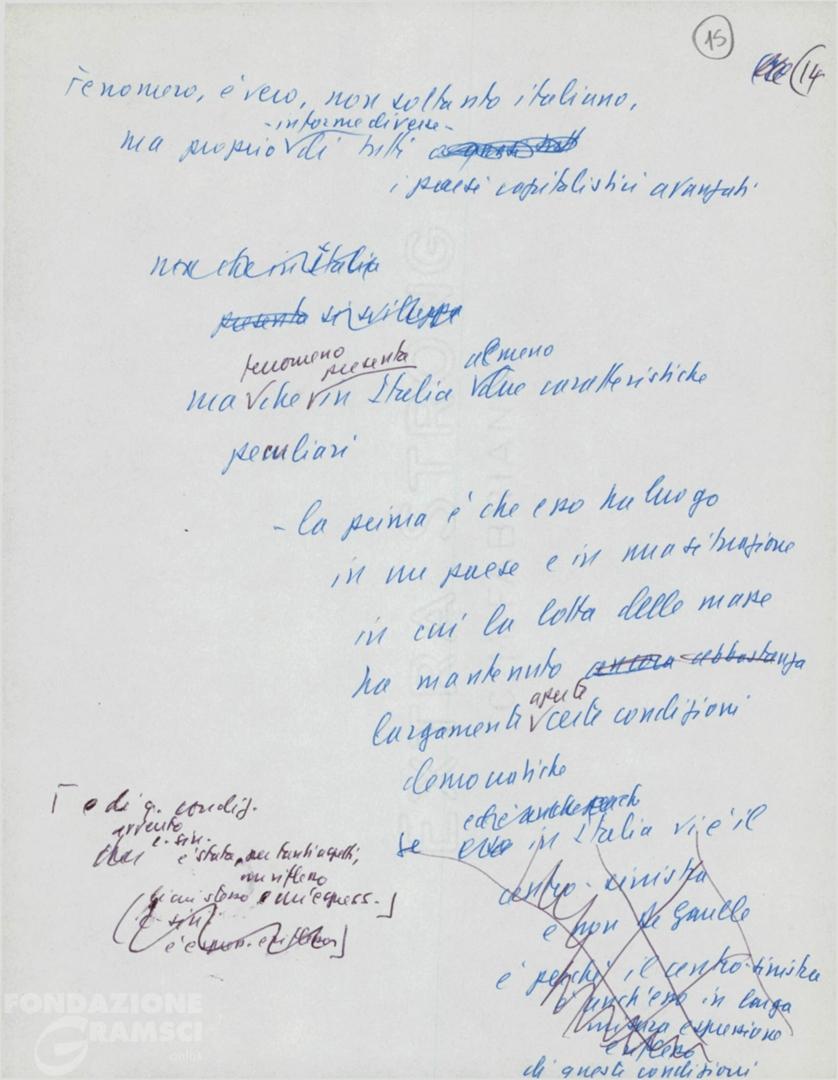 15
(14
Fenomeno, è vero, non soltanto italiano,
- in forme diverse -
ma proprio di tutti
i paesi capitalistici avanzati
non che in Italia
presenta si sviluppa
fenomeno presenta almeno
ma che in Italia due caratteristiche
peculiari
- la prima è che esso ha luogo
in un paese e in una situazione
in cui la lotta delle masse
ha mantenuto ancora abbastanza
aperte
largamente certe condizioni
democratiche
ed è anche perché
se esso in Italia vi è il
centro-sinistra
e non De Gaulle
è perché il centro-sinistra
è anch'esso in larga
misura espressione
e riflesso
di queste condizioni
e di q. condiz.
avvento
c. sin.
è stato, per tanti aspetti,
un riflesso
e un'espress.
FONDAZIONE
GRAMSCI
onlus
EXTRA STRONG